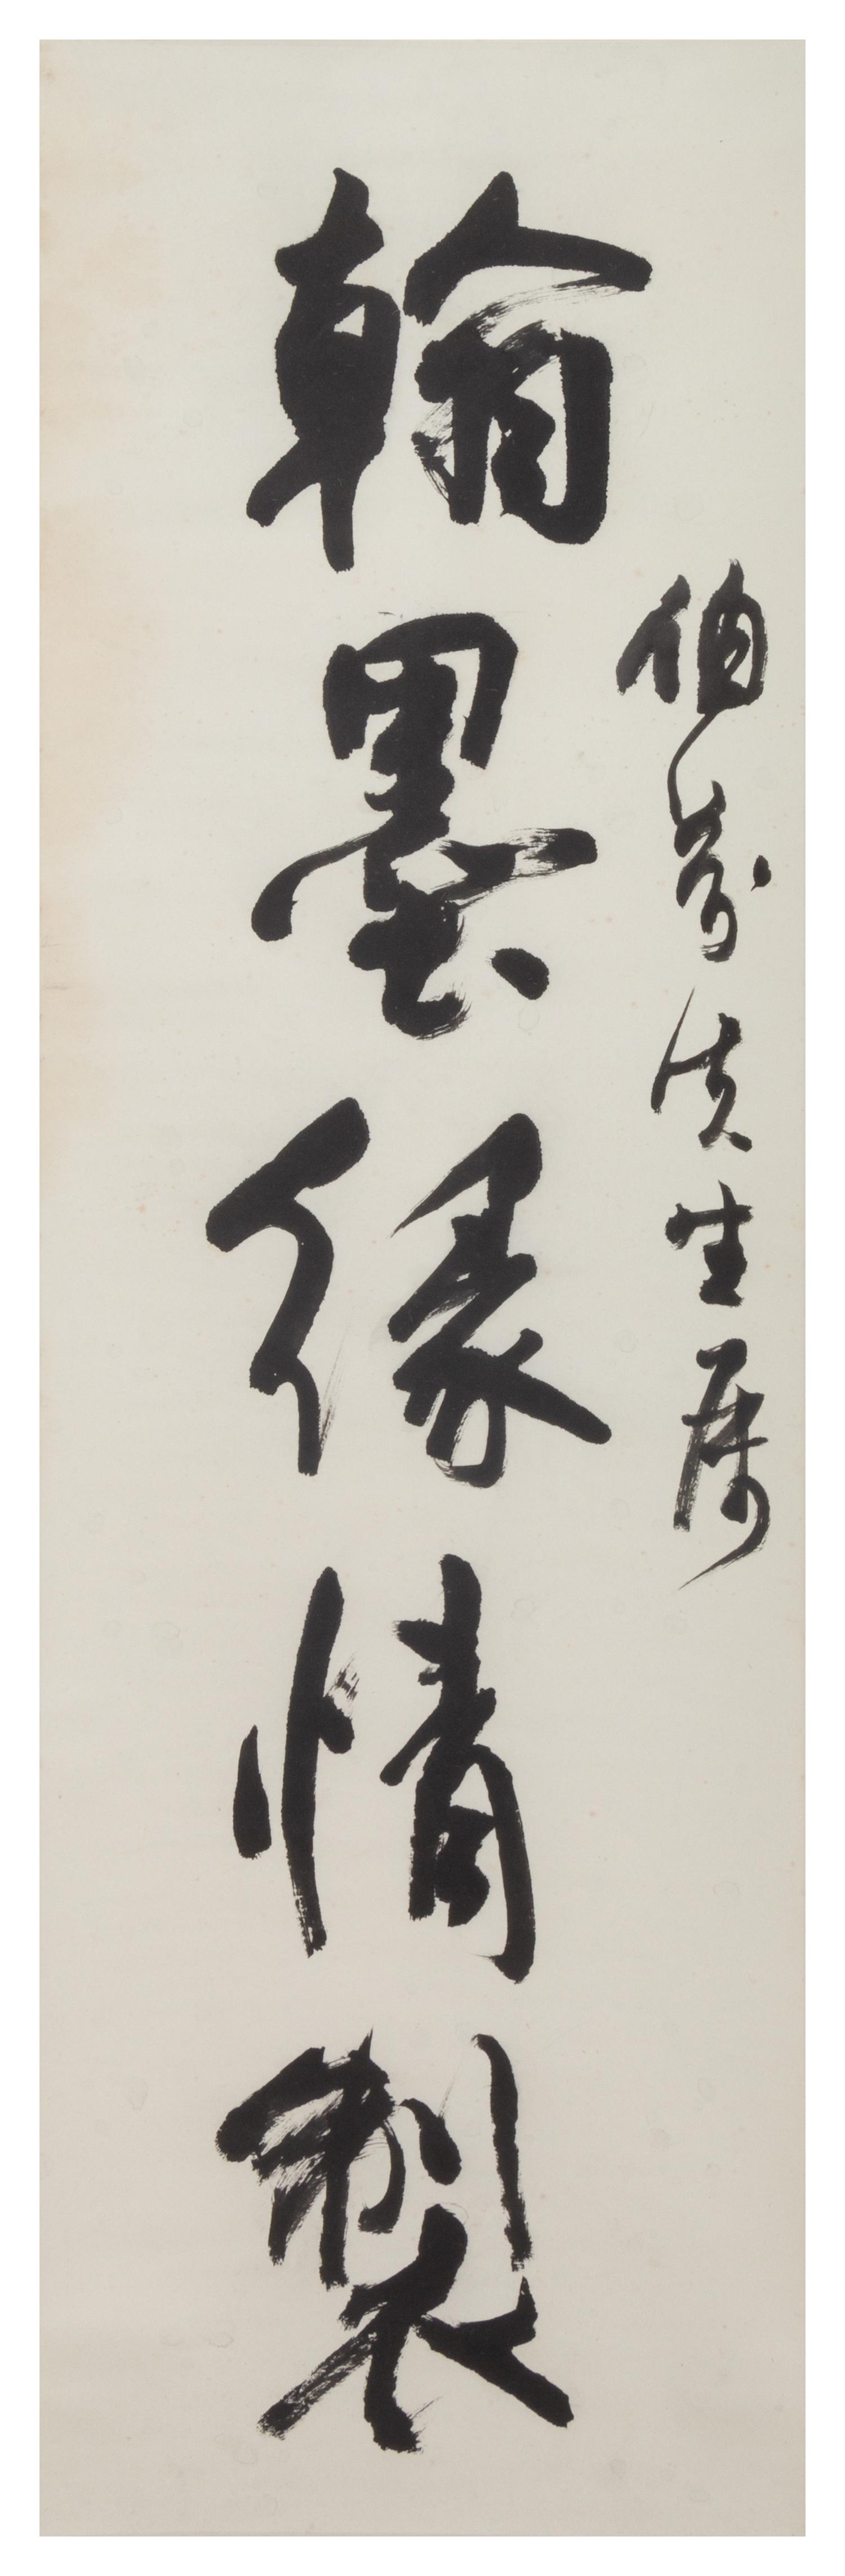 伯芳先生属
翰墨緣情製